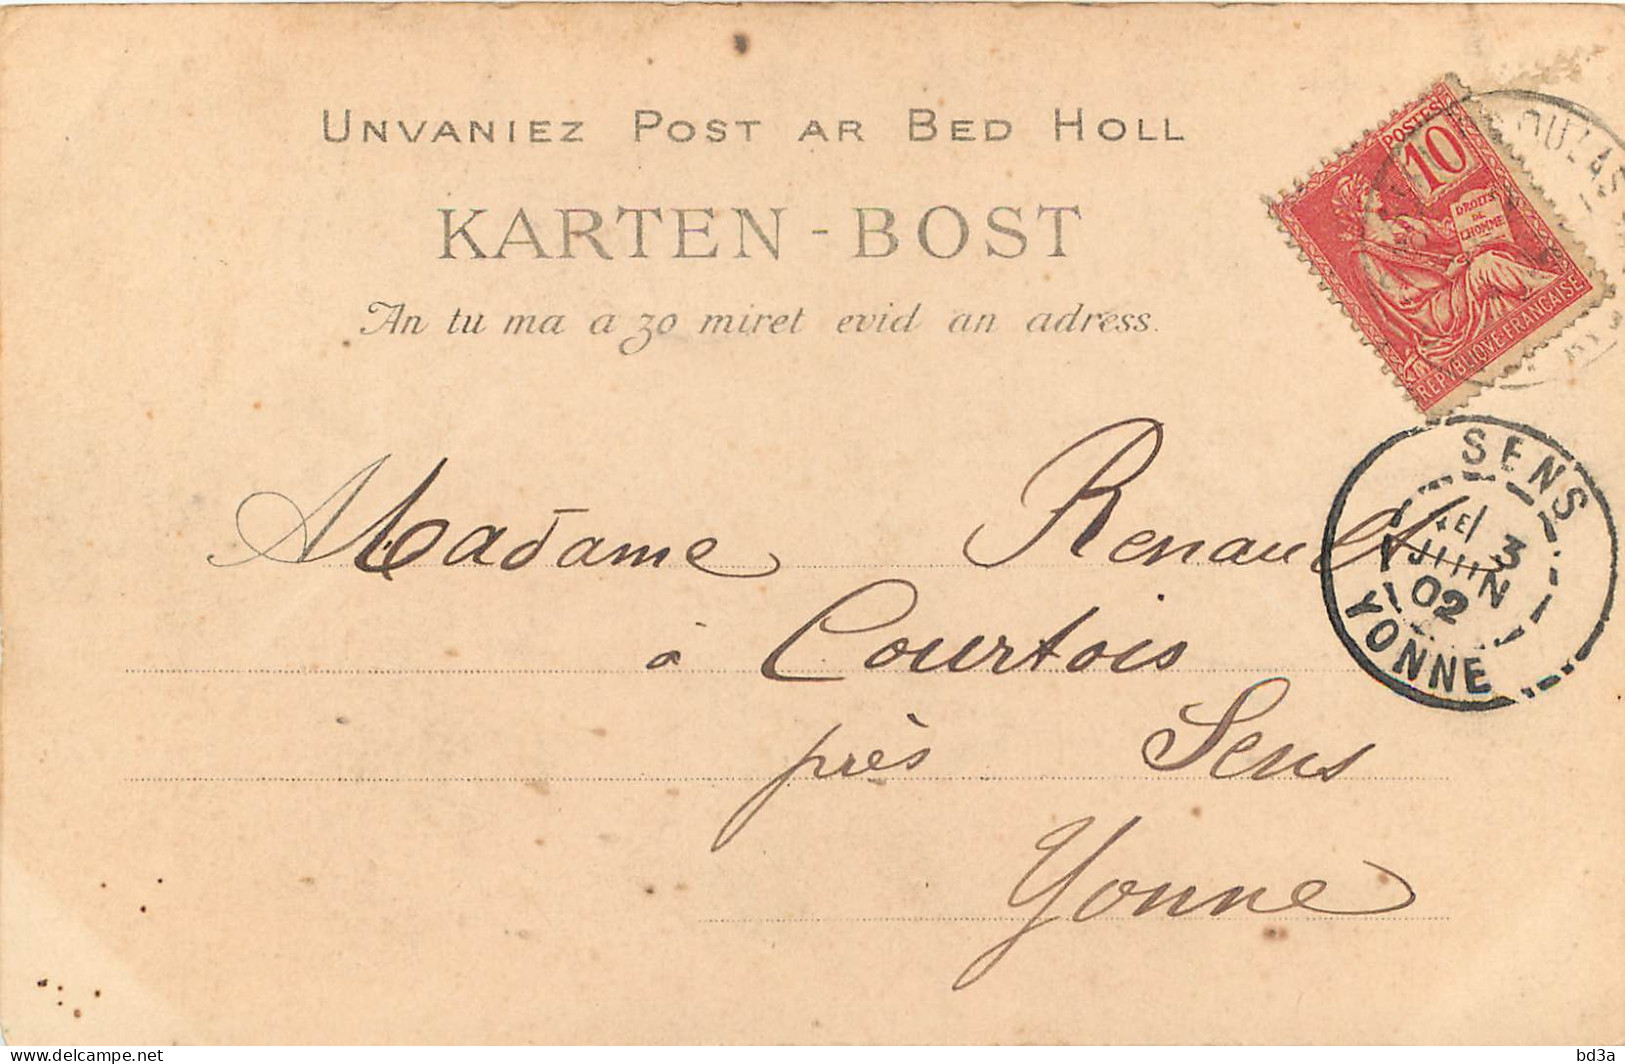 UNVANIEZ POST AR BED HOLL
KARTEN-BOST
An tu ma a zo miret evid an adress.
POSTES
10
DROITS
DE
L'HOMME
REPVBLIQVE FRANÇAISE
Madame Renault
à Courtois
près Sens
Yonne
SENS
3
JUIN
02
YONNE
delcampe.net
bd3a